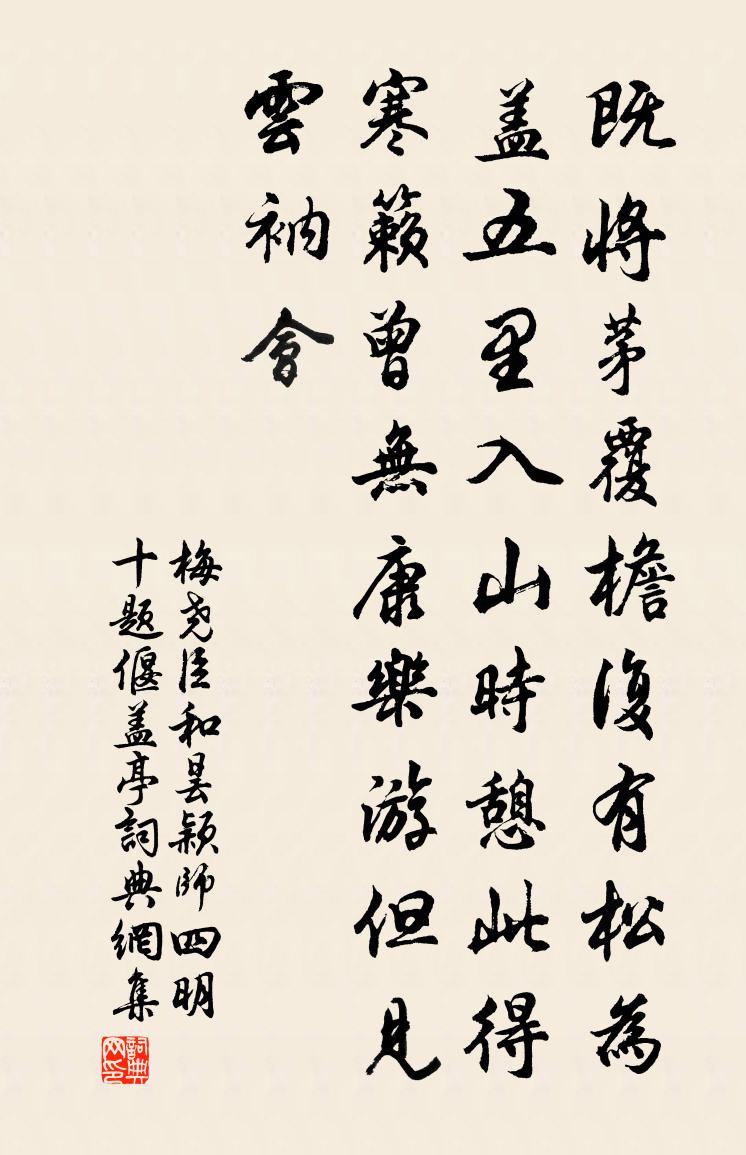 既将茅覆檐復有松為
盖五里入山時憩此得
寒籟曾無康樂游但見
雲衲會
梅尧臣和昙颖師四明
十题偃盖亭詞典網集
詞典
网印